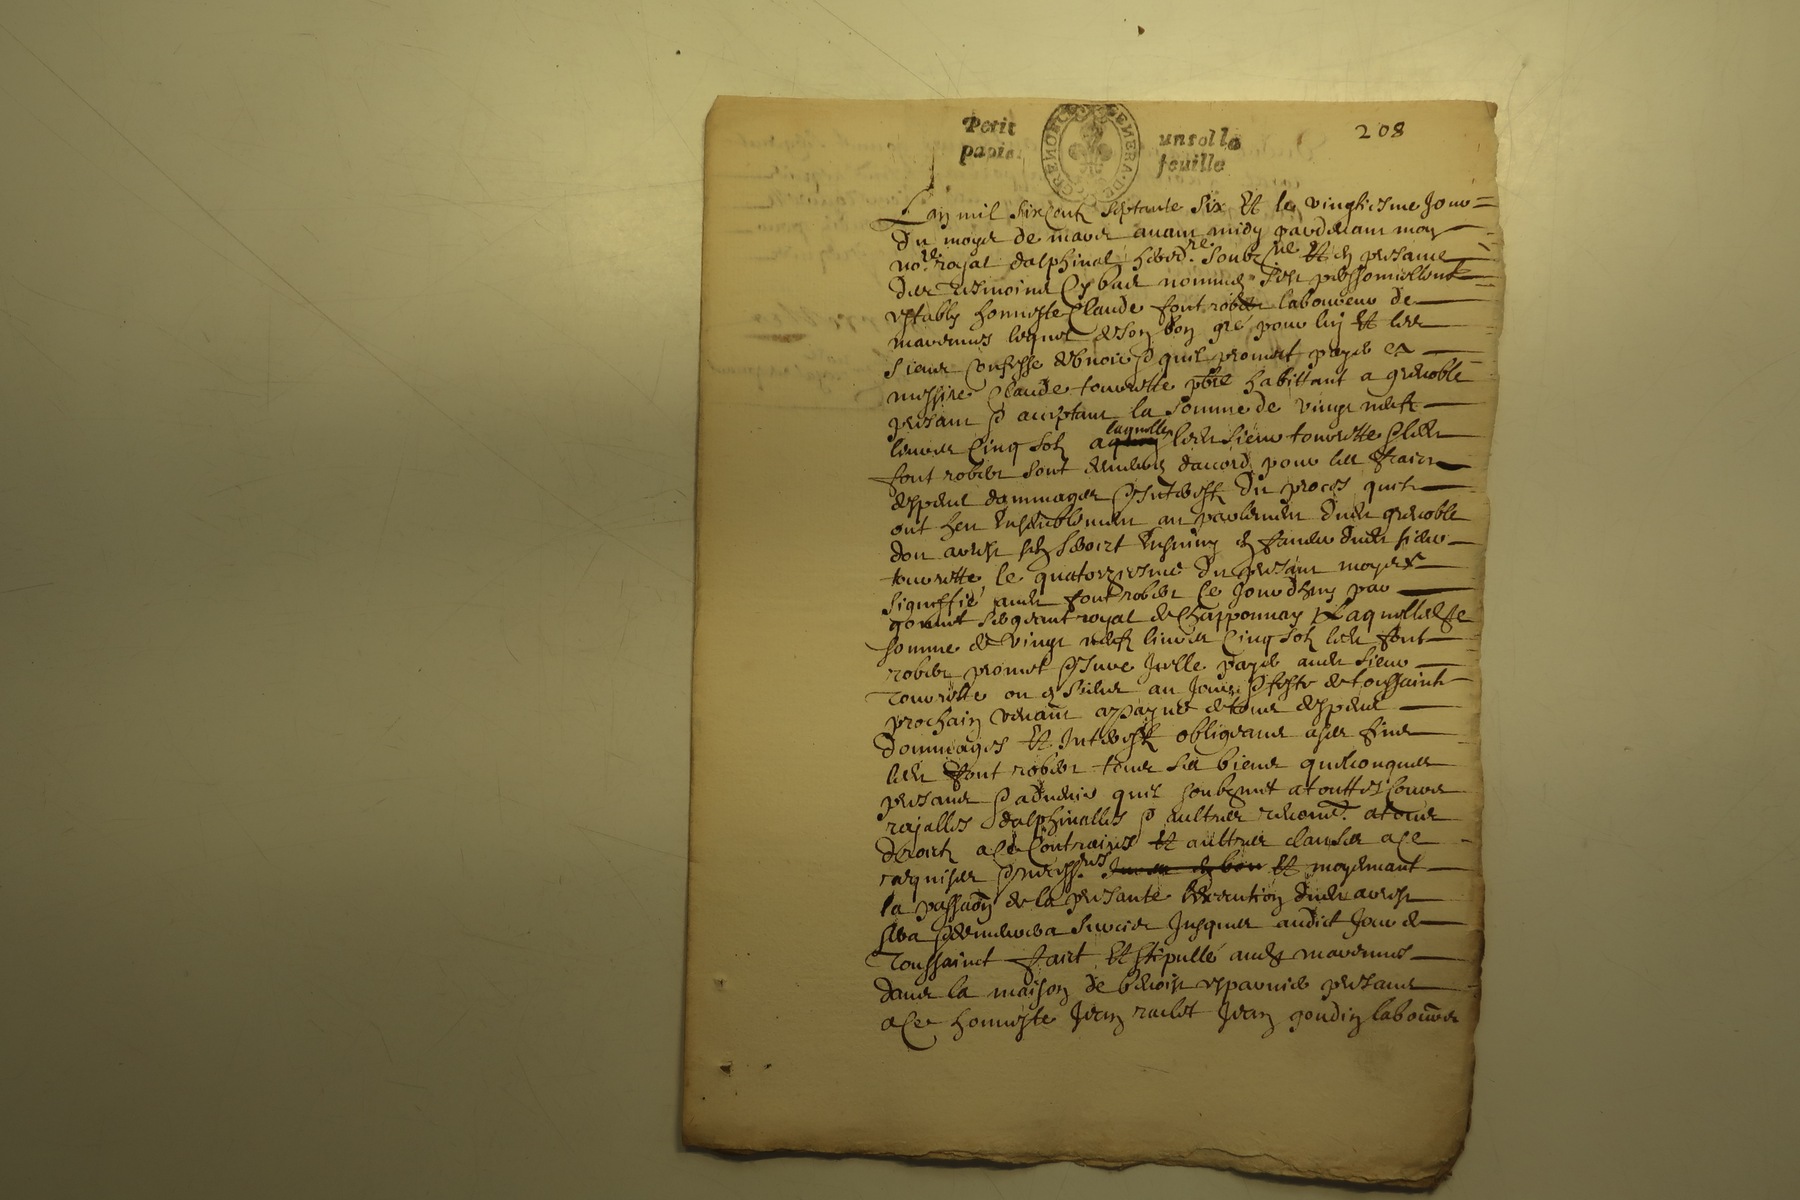 Petit papie un sol la feuille
GRENOBLE GENERA·DE
208
Lan mil six centz septante six Et le vingtiesme Jour
Du moys de mars avant midy pardevant moy
no.re royal dalphinal hered.re soubz.ne Et en presance
des tesmoins Cy bas nommes sest personnellement
estably honneste Claude font robert laboureur de
lequel de son bon gré pour luy Et les
siens confesse debvoir & quil promet payer a
messire Claude tourette pbre habittant a grenoble
presant & acceptant la somme de vingt neufz
livres Cinq solz laquelle ledit sieur tourette & ledit
font robert sont demeures daccord pour les fraicz
despens dommages & interestz du proces quilz
ont heu Ensemblement au parlement dudit grenoble
don arrest sen seroict Ensuivy en faveur dudit sieur
tourette le quatorziesme du presant moys &
signiffié audit font robert Ce Jourdhuy par
sergeant royal de Chapponnay laquelle dite
somme de vingt neufz livres Cinq solz ledit font
robert promet & Jure Icelle payer audit sieur
Tourette ou es siens au Jour & feste de toussaintz
prochain venant a payne de tous despens
Dommages Et Interestz obligeant a ses fins
ledit font robert tous ses biens quelconques
presans & advenir quil soubzmet a touttes Cours
rojalles dalphinalles & aultres a tous
Droictz a Ce Contraires Et aultres clauses a Ce
requises & necess.res Et moyennant
la passaon de la presante lexecution dudit arrest
sera & demeurera surcise Jusques audict Jour de
Toussainct faict Et stipullé audit
dans la maison de presans
a Ce honneste Jean Jean goudin laboureurs